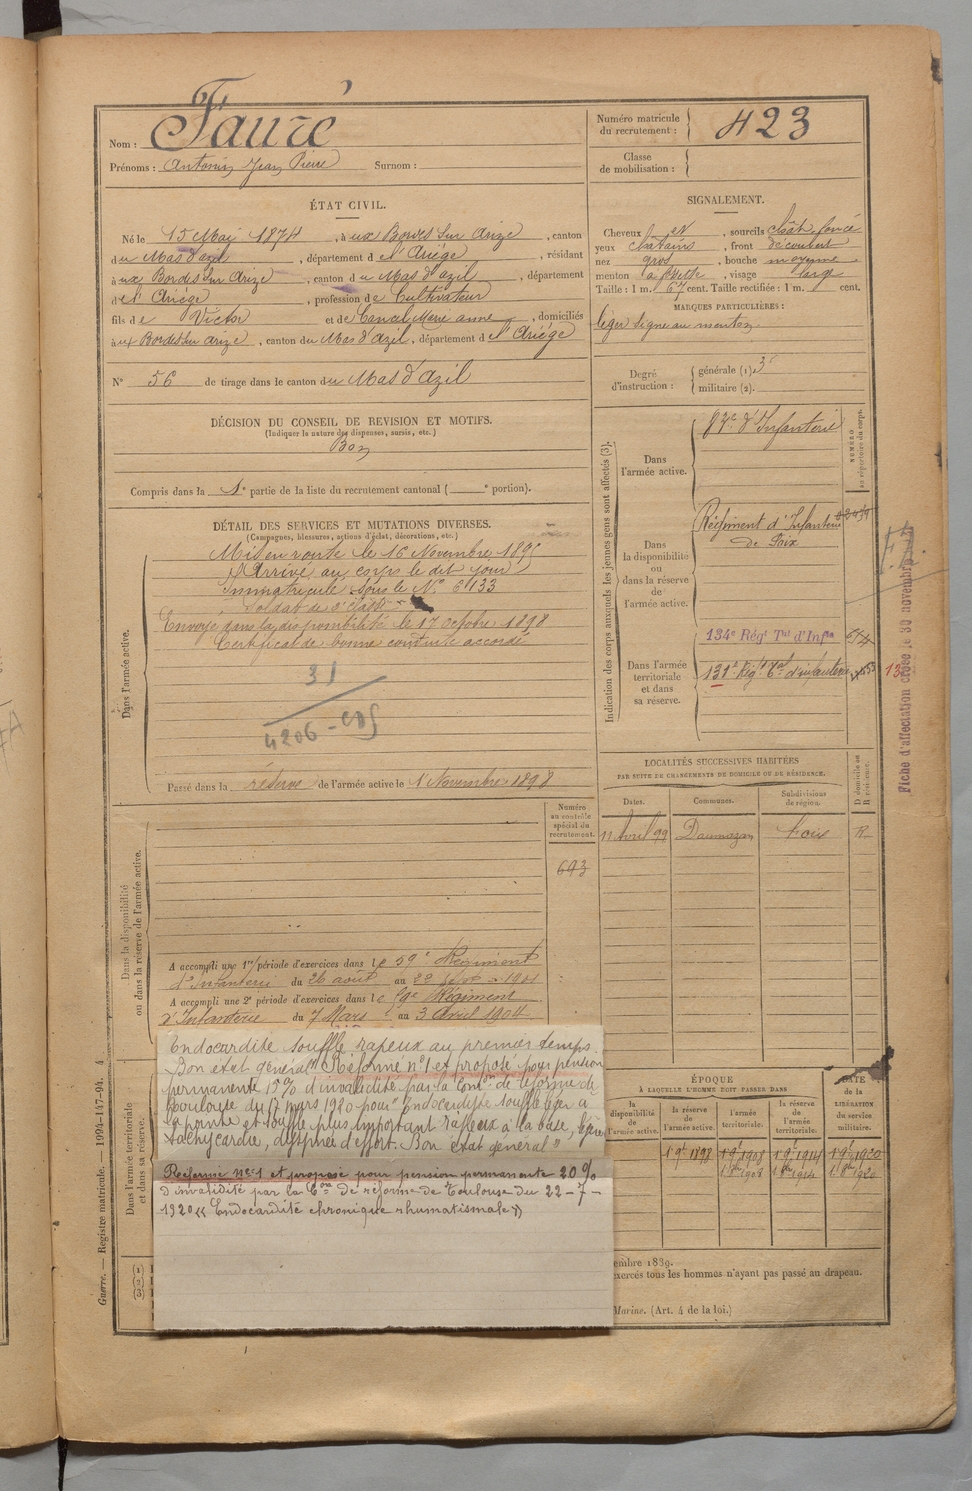 Nom : Faure
Prénoms : Antonin Jean Pierre Surnom :
Numéro matricule du recrutement : 423
Classe de mobilisation :
ÉTAT CIVIL.
Né le 15 Mai 1874, à ux Bordes Sur Arize, canton
du Mas d'azil, département de l'Ariége, résidant
à ux Bordes Sur Arize, canton du Mas d'azil, département
de l'Ariége, profession de Cultivateur
fils de Victor et de Cancel Marie anne, domiciliés
à ux Bordes Sur Arize, canton du Mas d'Azil, département de l'Ariége
N° 56 de tirage dans le canton du Mas d'Azil
SIGNALEMENT.
Cheveux et, sourcils chât. foncé
yeux chatains, front découvert
nez gros, bouche moyenne
menton à fossette, visage large
Taille : 1 m. 67 cent. Taille rectifiée : 1 m. cent.
MARQUES PARTICULIÈRES :
léger signe au menton
Degré d'instruction : générale (1) 3
militaire (2).
DÉCISION DU CONSEIL DE REVISION ET MOTIFS.
(Indiquer la nature des dispenses, sursis, etc.)
Bon
Compris dans la 1e partie de la liste du recrutement cantonal ( e portion).
DÉTAIL DES SERVICES ET MUTATIONS DIVERSES.
(Campagnes, blessures, actions d'éclat, décorations, etc.)
Dans l'armée active.
Mis en route le 16 Novembre 1895
Arrivé au corps le dit jour
Immatriculé sous le N° 6133
Soldat de 2e classe
Envoyé dans la disponibilité le 17 octobre 1898
Certificat de bonne conduite accordé
31
4206
Passé dans la réserve de l'armée active le 1 Novembre 1898
Indication des corps auxquels les jeunes gens sont affectés (3).
NUMÉRO au répertoire du corps.
Dans l'armée active.
d'Infanterie
Dans la disponibilité ou dans la réserve de l'armée active.
Régiment d'Infanterie
de Foix
Dans l'armée territoriale et dans sa réserve.
134e Régt Tal d'Infie
131e Régt Tal d'infanterie
Fiche d'affectation créée le 30 novembre
LOCALITÉS SUCCESSIVES HABITÉES
PAR SUITE DE CHANGEMENTS DE DOMICILE OU DE RÉSIDENCE.
Dates. Communes. Subdivisions de région. D domicile ou R résidence.
11 Avril 99 Daumazan Foix R
Dans la disponibilité ou dans la réserve de l'armée active.
Numéro au contrôle spécial du recrutement.
693
A accompli une 1re période d'exercices dans le 59e Régiment
d'Infanterie du 26 août au 22 1901
A accompli une 2e période d'exercices dans le Régiment
d'Infanterie du 7 Mars au 3 Avril 1904
Dans l'armée territoriale et dans sa réserve.
Endocardite souffle rapeux au premier temps.
Bon état général" Réformé n°1 et proposé pour pension
permanente 15% d'invalidité par la Comon de réforme de
Toulouse du 17 mars 1920 pour "Endocardite souffle léger à
la pointe et souffle plus important râpeux à la base, légère
tachycardie, dyspnée d'effort. Bon état général"
Réformé N°1 et proposé pour pension permanente 20%
d'invalidité par la Con de réforme de Toulouse du 22-7-
1920 « Endocardite chronique rhumatismale »
ÉPOQUE
À LAQUELLE L'HOMME DOIT PASSER DANS
la disponibilité de l'armée active. la réserve de l'armée active. l'armée territoriale. la réserve de l'armée territoriale.
DATE de la LIBÉRATION du service militaire.
1 9e 1898 1 9e 1908 1 9e 1914 1 9e 1920
1 8bre 1908 1 8bre 1914 1 8bre 1920
(1)
(2)
(3)
embre 1889.
exercés tous les hommes n'ayant pas passé au drapeau.
Marine. (Art. 4 de la loi.)
Guerre. — Registre matricule. — 1994-147-94. 4